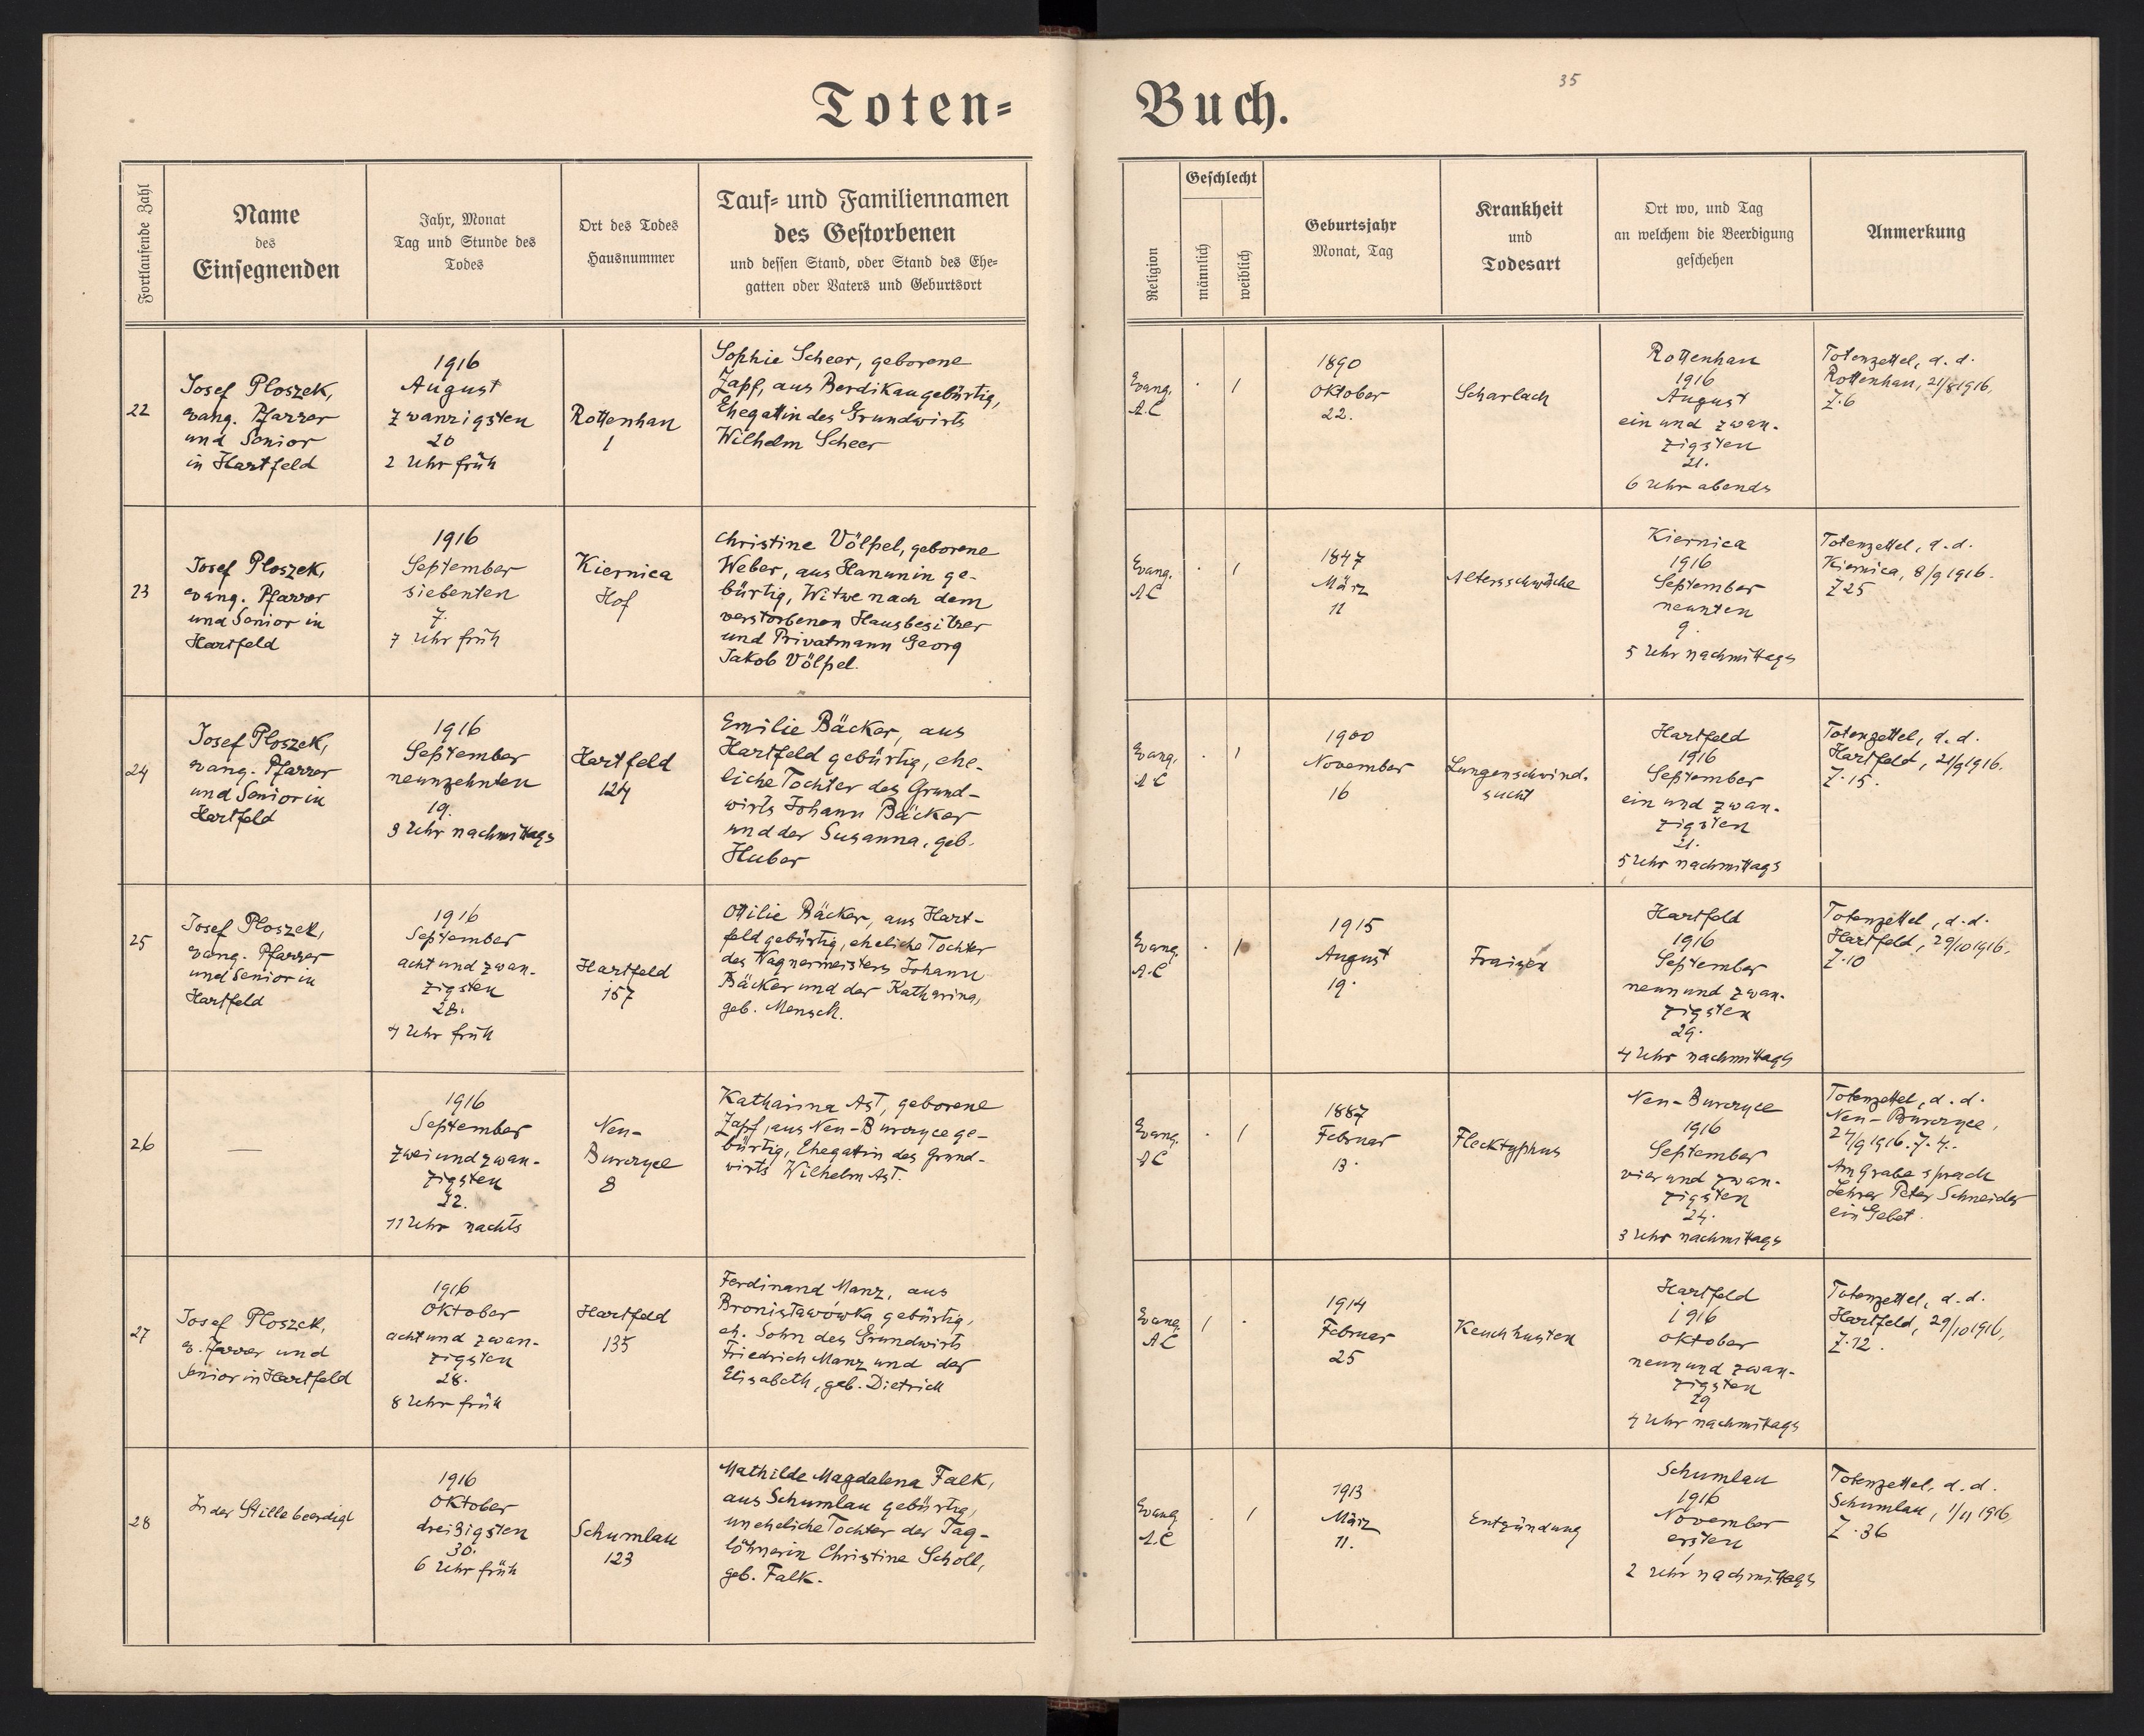 Toten=
Buch.
35
Fortlaufende Zahl
Name
des
Einsegnenden
Jahr, Monat
Tag und Stunde des
Todes
Ort des Todes
Hausnummer
Tauf= und Familiennamen
des Gestorbenen
und dessen Stand, oder Stand des Ehe=
gatten oder Vaters und Geburtsort
Religion
Geschlecht
männlich
weiblich
Geburtsjahr
Monat, Tag
Krankheit
und
Todesart
Ort wo, und Tag
an welchem die Beerdigung
geschehen
Anmerkung
22
Josef Ploszek,
evang. Pfarrer
und Senior
in Hartfeld
1916
August
zwanzigsten
20
2 Uhr früh
Rottenhan
1
Sophie Scheer, geborene
Zapf, aus Berdikau gebürtig,
Ehegattin des Grundwirts
Wilhelm Scheer
Evang.
A.C
. 1
1890
Oktober
22.
Scharlach
Rottenhan
1916
August
ein und zwan-
zigsten
21.
6 Uhr abends
Totenzettel, d. d.
Rottenhan, 21/8 1916,
Z. 6
23
Josef Ploszek,
evang. Pfarrer
und Senior in
Hartfeld
1916
September
siebenten
7.
7 Uhr früh
Kiernica
Hof
Christine Völpel, geborene
Weber, aus Hanunin ge-
bürtig, Witwe nach dem
verstorbenen Hausbesitzer
und Privatmann Georg
Jakob Völpel.
Evang.
AC
. 1
1847
März
11
Altersschwäche
Kiernica
1916
September
neunten
9.
5 Uhr nachmittags
Totenzettel, d.d.
Kiernica, 8/9 1916.
Z 25
24
Josef Ploszek,
evang. Pfarrer
und Senior in
Hartfeld
1916
September
neunzehnten
19.
3 Uhr nachmittags
Hartfeld
124
Emilie Bäcker, aus
Hartfeld gebürtig, ehe-
liche Tochter des Grund-
wirts Johann Bäcker
und der Susanna, geb.
Huber
Evang.
AC
. 1
1900
November
16
Lungenschwind-
sucht
Hartfeld
1916
September
ein und zwan-
zigsten
21.
5 Uhr nachmittags
Totenzettel, d. d.
Hartfeld, 21/9 1916.
Z. 15.
25
Josef Ploszek,
evang. Pfarrer
und Senior in
Hartfeld
1916
September
acht und zwan-
zigsten
28.
4 Uhr früh
Hartfeld
157
Ottilie Bäcker, aus Hart-
feld gebürtig, eheliche Tochter
des Wagnermeisters Johann
Bäcker und der Katharina,
geb. Mensch.
Evang.
A.C
. 1
1915
August
19.
Fraisen
Hartfeld
1916
September
neun und zwan-
zigsten
29.
4 Uhr nachmittags
Totenzettel, d.d.
Hartfeld, 29/10 1916.
Z. 10
26
—
1916
September
zwei und zwan-
zigsten
22.
11 Uhr nachts
Neu-
Burczyce
8
Katharina Ast, geborene
Zapf, aus Neu-Burczyce ge-
bürtig, Ehegattin des Grund-
wirts Wilhelm Ast.
Evang.
AC
. 1
1887
Februar
13.
Flecktyphus
Neu-Burczyce
1916
September
vier und zwan-
zigsten
24.
3 Uhr nachmittags
Totenzettel, d. d.
Neu-Burczyce,
24/9 1916. Z. 4.
Am Grabe sprach
Lehrer Peter Schneider
ein Gebet.
27
Josef Ploszek,
ev. Pfarrer und
Senior in Hartfeld
1916
Oktober
acht und zwan-
zigsten
28.
8 Uhr früh
Hartfeld
135
Ferdinand Manz, aus
Bronisławówka gebürtig,
eh. Sohn des Grundwirts
Friedrich Manz und der
Elisabeth, geb. Dietrich
Evang.
AC
1 .
1914
Februar
25
Keuchhusten
Hartfeld
1916
Oktober
neun und zwan-
zigsten
29
4 Uhr nachmittags
Totenzettel, d. d.
Hartfeld, 29/10 1916,
Z. 12.
28
In der Stille beerdigt
1916
Oktober
dreißigsten
30.
6 Uhr früh
Schumlau
123
Mathilde Magdalena Falk,
aus Schumlau gebürtig,
uneheliche Tochter der Tag-
löhnerin Christine Scholl,
geb. Falk.
Evang
A.C
. 1
1913
März
11.
Entzündung
Schumlau
1916
November
ersten
1
2 Uhr nachmittags
Totenzettel, d. d.
Schumlau, 1/11 1916,
Z. 36